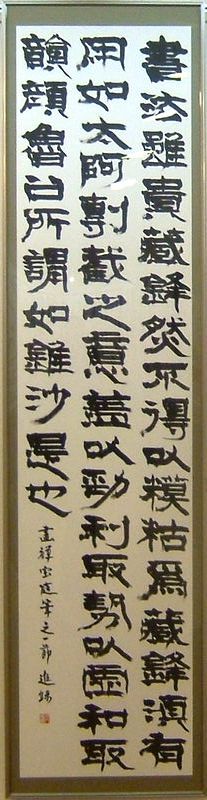 書法雖貴藏鋒然不得以糢糊為藏鋒湏有
用如太阿剸截之意蓋以勁利取勢以虛和取
韻顏魯公所謂如錐沙是也
畫禪室随筆之一節 進